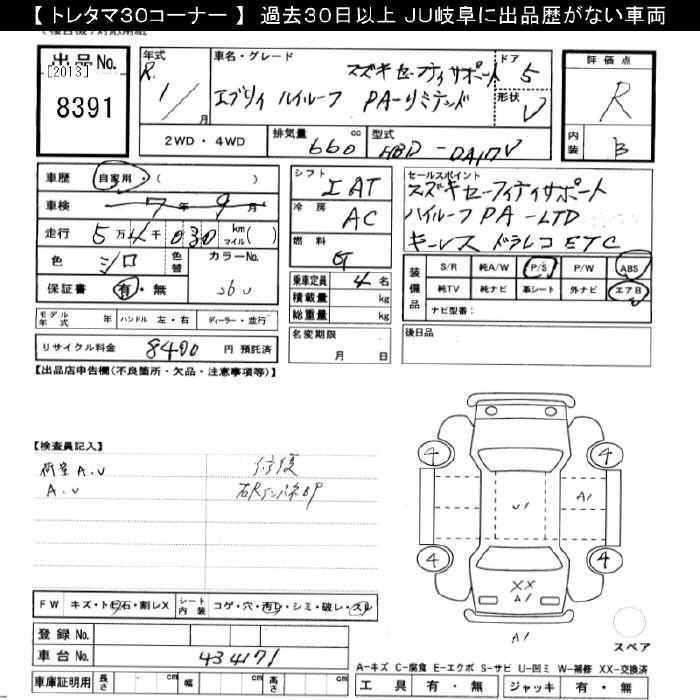 【 トレタマ30コーナー 】 過去30日以上 JU岐阜に出品歴がない車両
出品No. [2013] 8391
年式 R. 1 / 月
車名・グレード スズキセーフティサポート
エブリイ ハイルーフ PAーリミテッド
ドア 5
形状 V
評価点 R
内装 B
2WD・4WD 排気量 660 cc 型式 HBD-DA17V
車歴 自家用 ( )
車検 7年 9月
走行 5万 4千 030 km マイル( )
色 シロ 色替 カラーNo. 26U
保証書 有・無
シフト IAT
冷房 AC
燃料 G
乗車定員 4 名
積載量 kg
総重量 kg
セールスポイント
スズキセーフィティサポート
ハイルーフ PA-LTD
キーレス ドラレコ ETC
装備品 S/R 純A/W P/S P/W ABS
純TV 純ナビ 革シート 外ナビ エアB
ナビ型番:
モデル年式 年 ハンドル 左・右 ディーラー・並行
リサイクル料金 8400 円 預託済
名変期限 月 日
後日品
【出品店申告欄(不良箇所・欠品・注意事項等)】
【検査員記入】
荷室A.U 修復
A.U
4 4
A1
U1
4 4
XX
A1
A1
スペア
FW キズ・トビ石・割レX シート内装 コゲ・穴・汚レ・シミ・破レ・スレ
登録No.
車台No. 434171
A-キズ C-腐食 E-エクボ S-サビ U-凹ミ W-補修 XX-交換済
車庫証明用 長さ cm 幅 cm 高さ cm
工具 有・無 ジャッキ 有・無